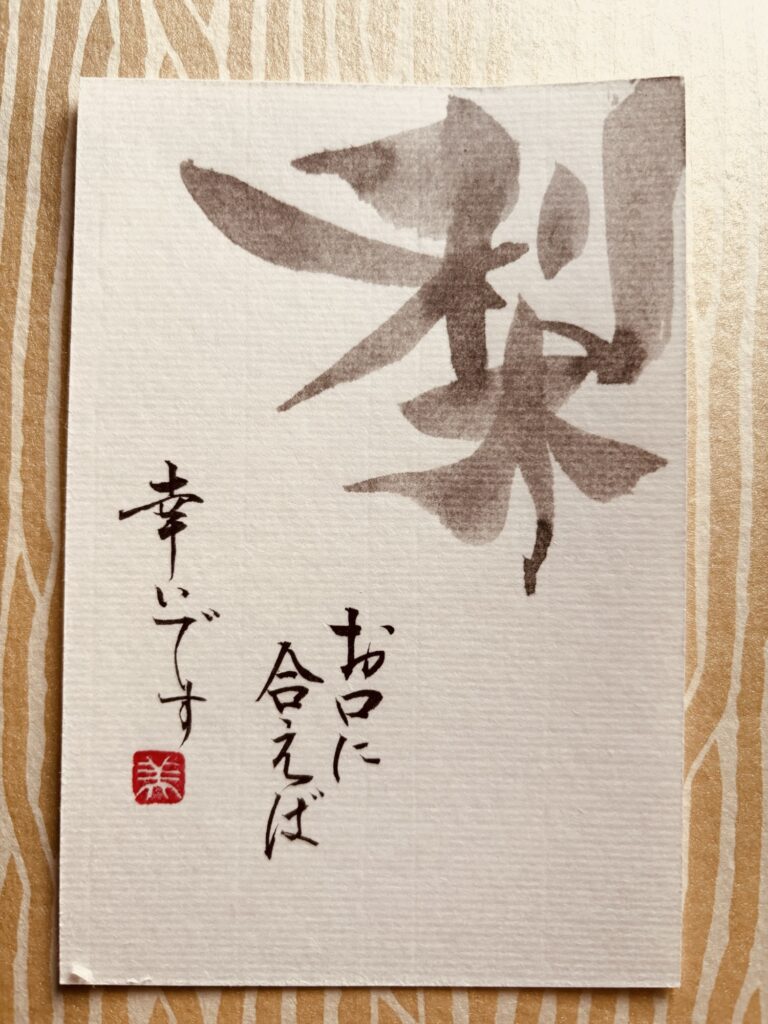 梨
お口に
合えば
幸いです
美